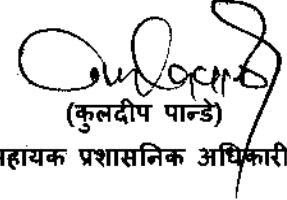 (कुलदीप पान्डे)
सहायक प्रशासनिक अधिकारी